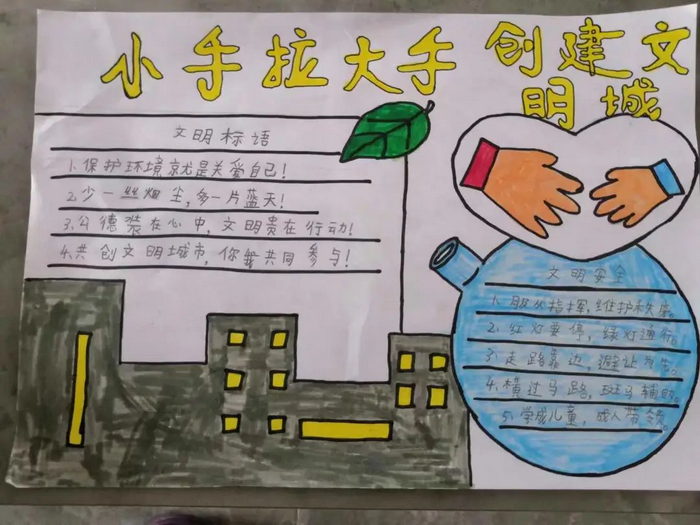 小手拉大手 创建文
明城
文明标语
1.保护环境就是关爱自己!
2.少一丝烟尘,多一片蓝天!
3.公德装在心中,文明贵在行动!
4.共创文明城市,你我共同参与!
文明安全
1.服从指挥,维护秩序。
2.红灯要停,绿灯通行。
3.走路靠边,避让为先。
4.横过马路,斑马辅助。
5.学成儿童,成人带领。